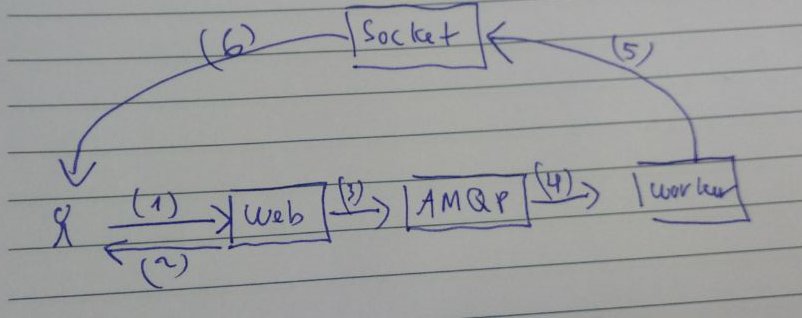 (6) Socket (5)
(1) Web (3) AMQP (4) Worker
(2)